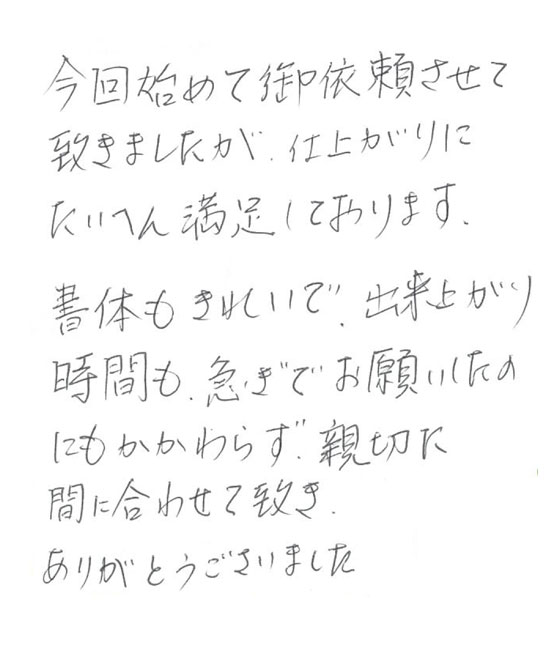 今回始めて御依頼させて
致きましたが、仕上がりに
たいへん満足しております、
書体もきれいで、出来上がり
時間も、急ぎでお願いしたの
にもかかわらず、親切に
間に合わせて致き、
ありがとうございました